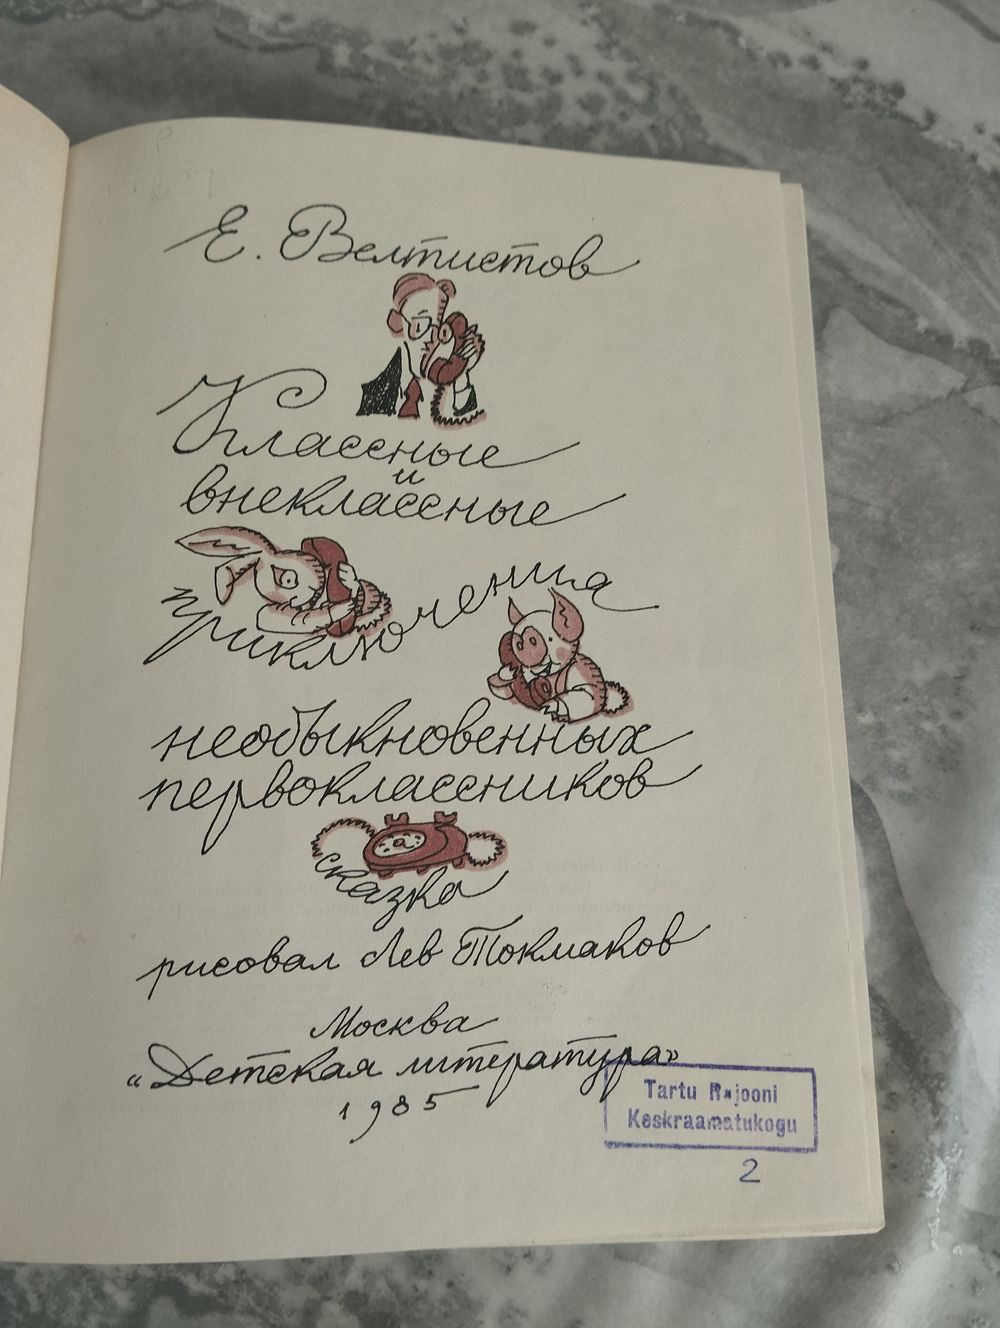 Е. Велтистов
Классные
и
внеклассные
приключения
необыкновенных
первоклассников
сказка
рисовал Лев Токмаков
Москва
«Детская литература»
1985
Tartu Rajooni
Keskraamatukogu
2